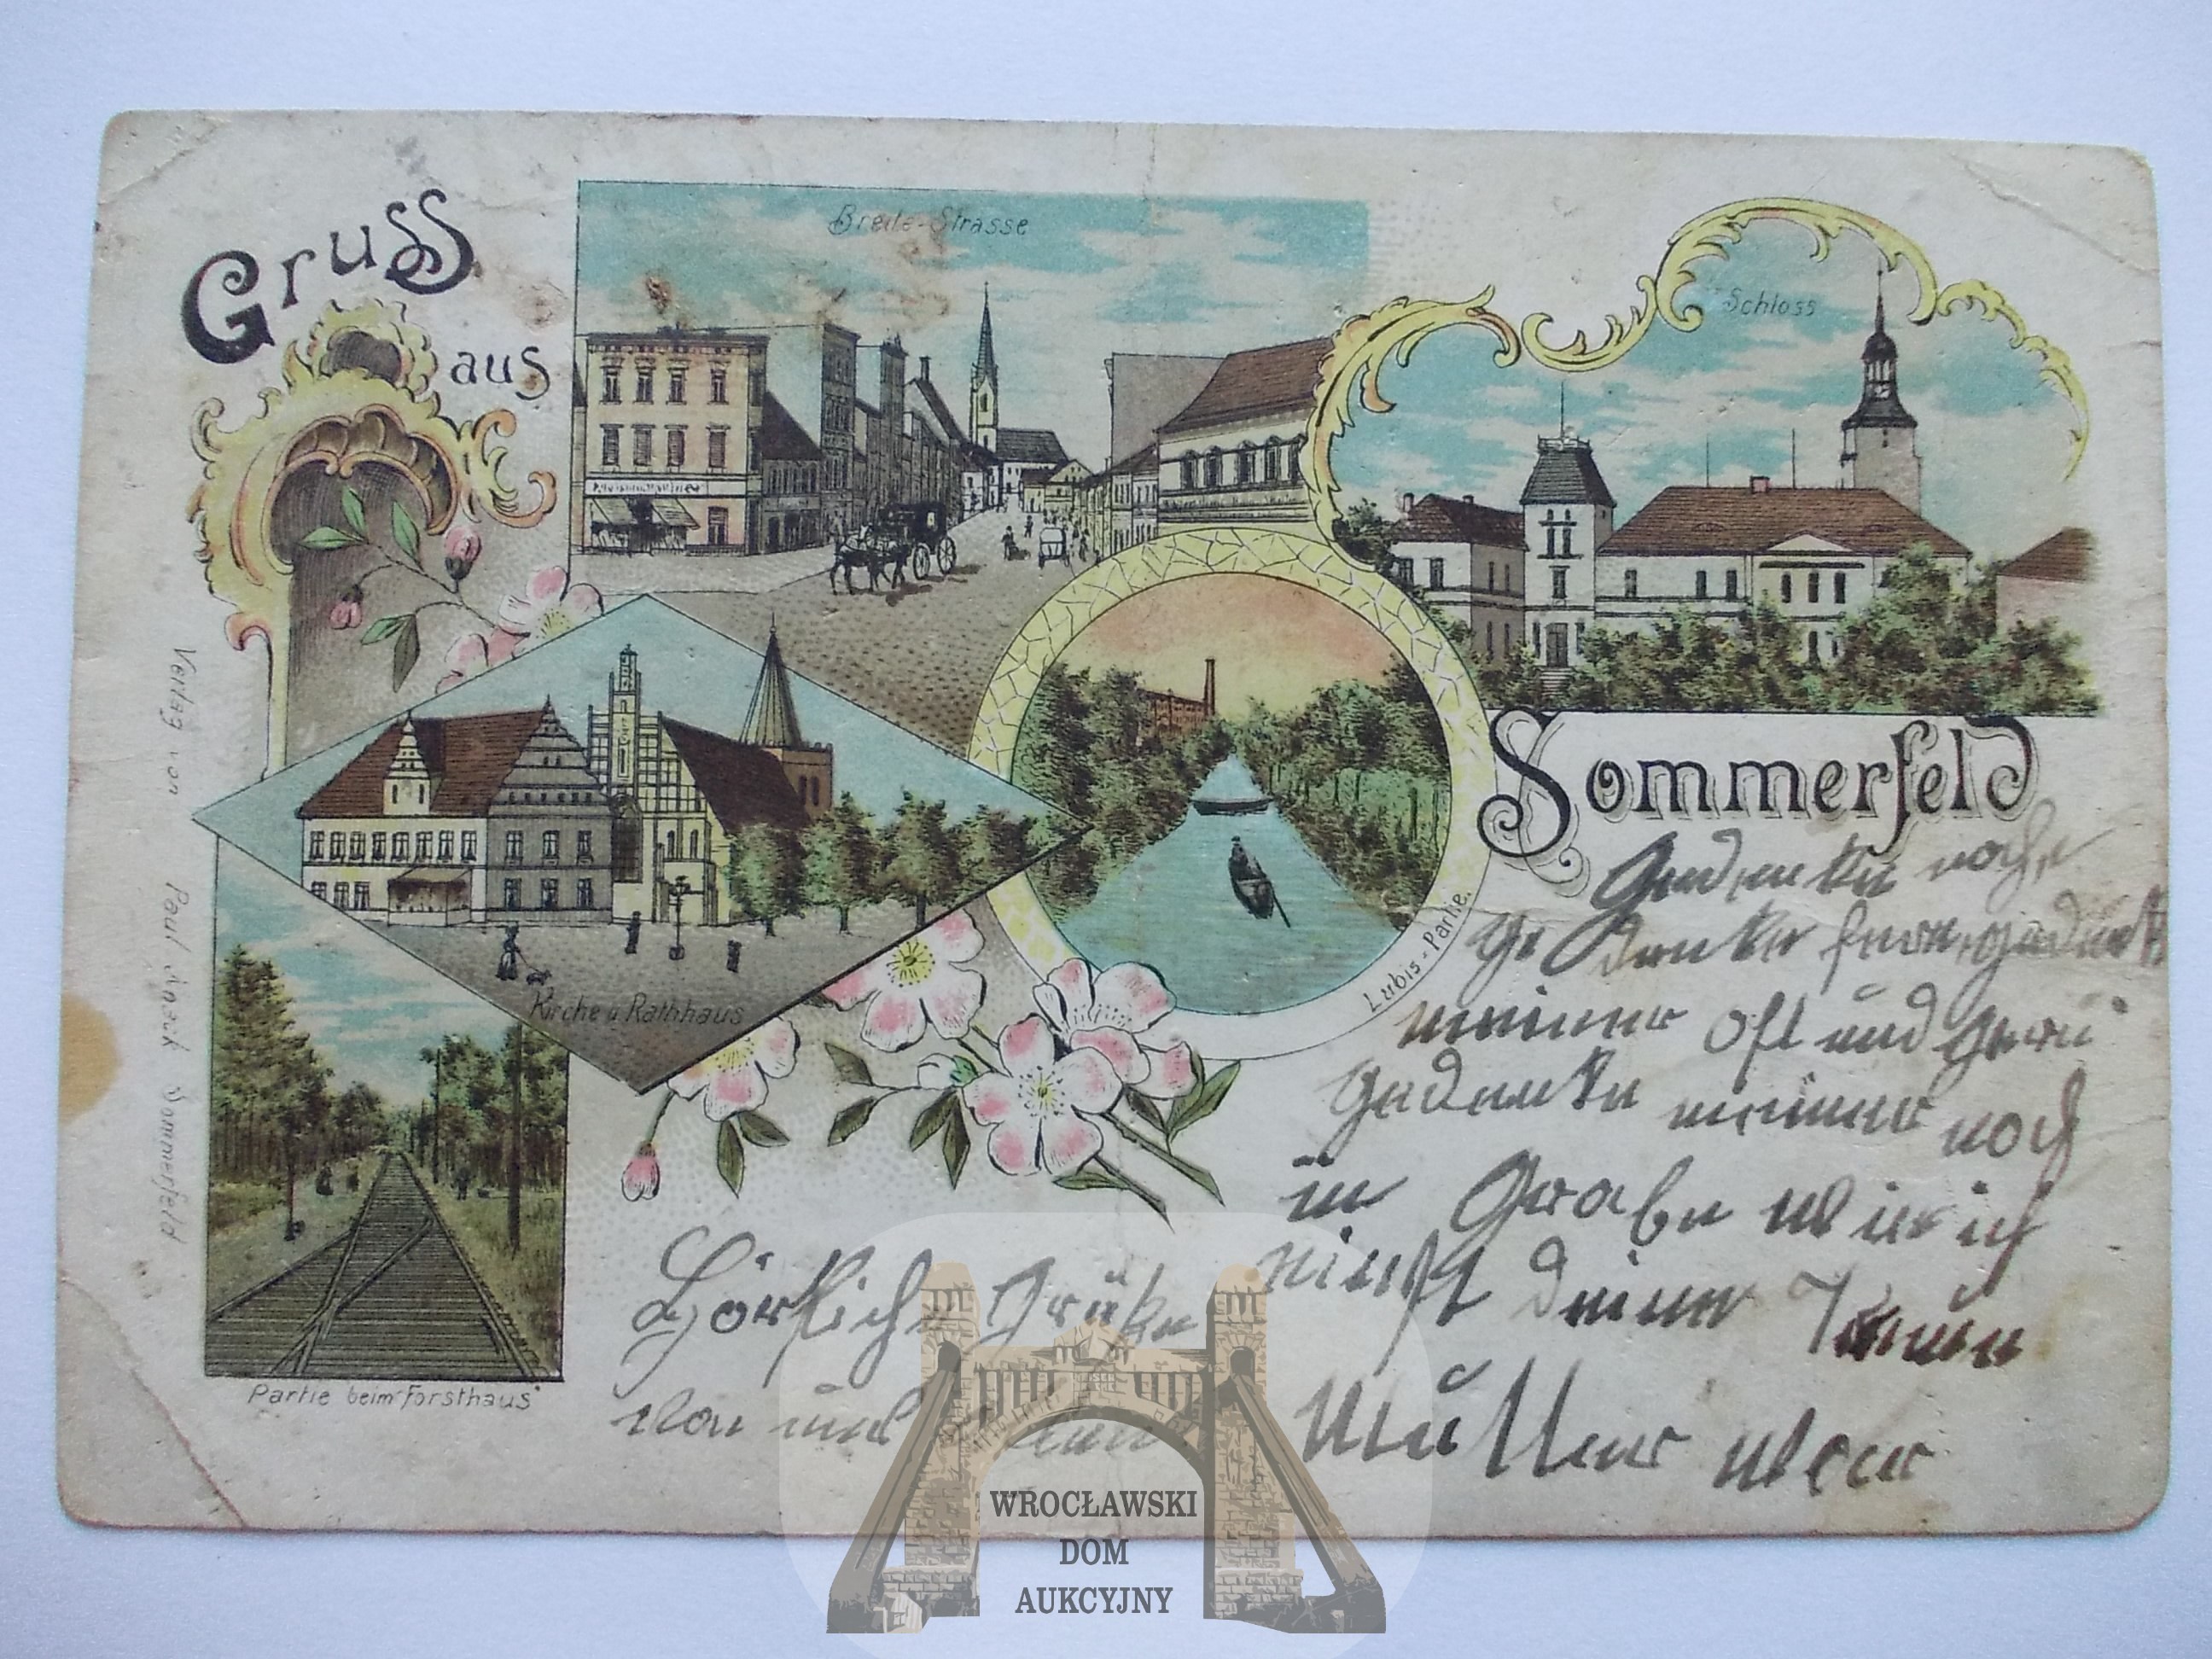 Gruss
aus
Breite-Strasse
Schloss
Sommerfeld
Kirche u. Rathhaus
Lubis-Partie.
Partie beim Forsthaus
Verlag von Paul Sommerfeld
Gedenke
Gedanke
meiner oft und
gedenke meiner noch
im Grabe wie ich
einst deiner
Mutter war
Grüße
von
WROCŁAWSKI
DOM
AUKCYJNY